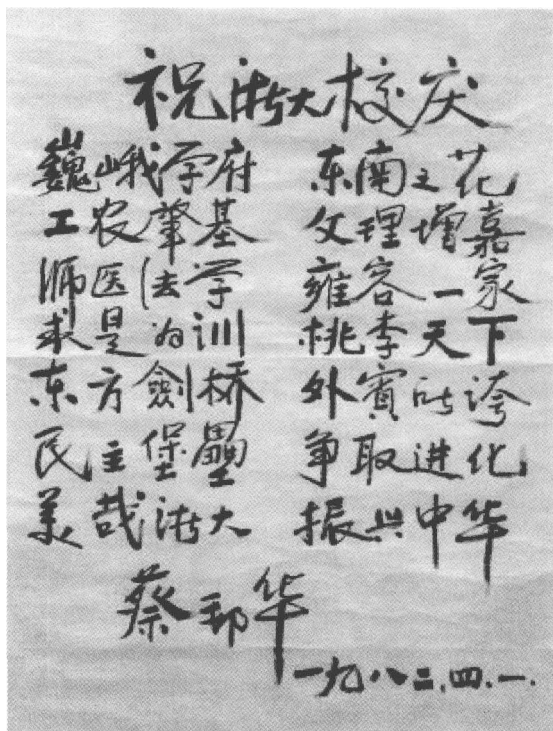 祝浙大校庆
巍峨学府 东南之花
工农肇基 文理增嘉
师医法学 雍容一家
求是为训 桃李天下
东方劍桥 外賓所誇
民主堡壘 争取进化
美哉浙大 振兴中华
蔡邦华
一九八二.四.一.